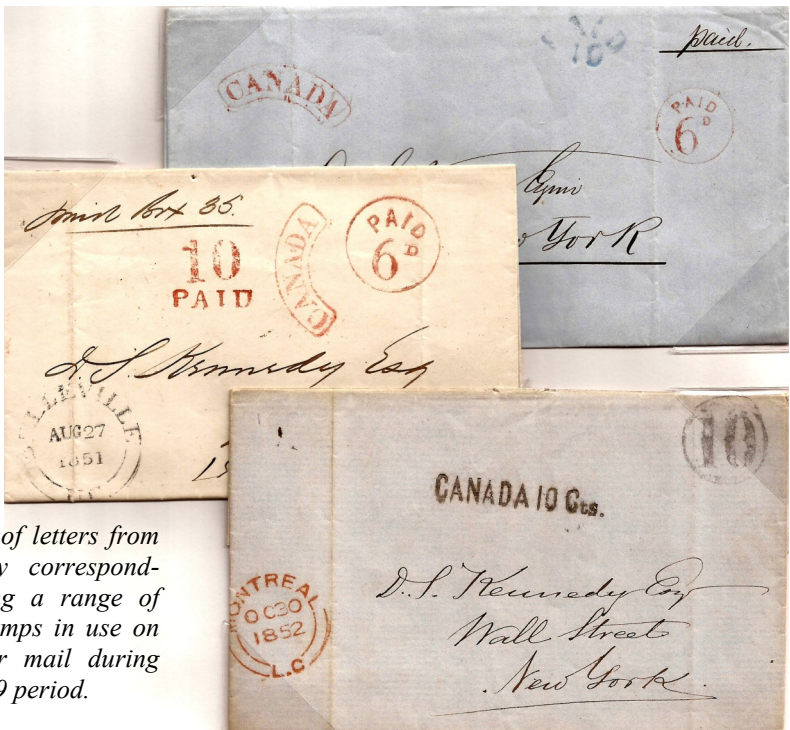 paid.
CANADA
PAID
6D
York
Box 35.
10
PAID
CANADA
PAID
6D
D. S. Kennedy Esq
BELLEVILLE
AUG 27
1851
CANADA 10 Cts.
10
MONTREAL
OC 30
1852
L.C
D. S. Kennedy Esq
Wall Street
New York.
of letters from
correspond-
g a range of
mps in use on
r mail during
9 period.